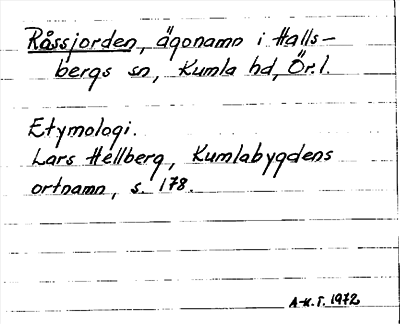 Råssjorden, ägonamn i Halls-
bergs sn, Kumla hd, Ör.l.
Etymologi.
Lars Hellberg, Kumlabygdens
ortnamn, s. 178.
A-K.T. 1972